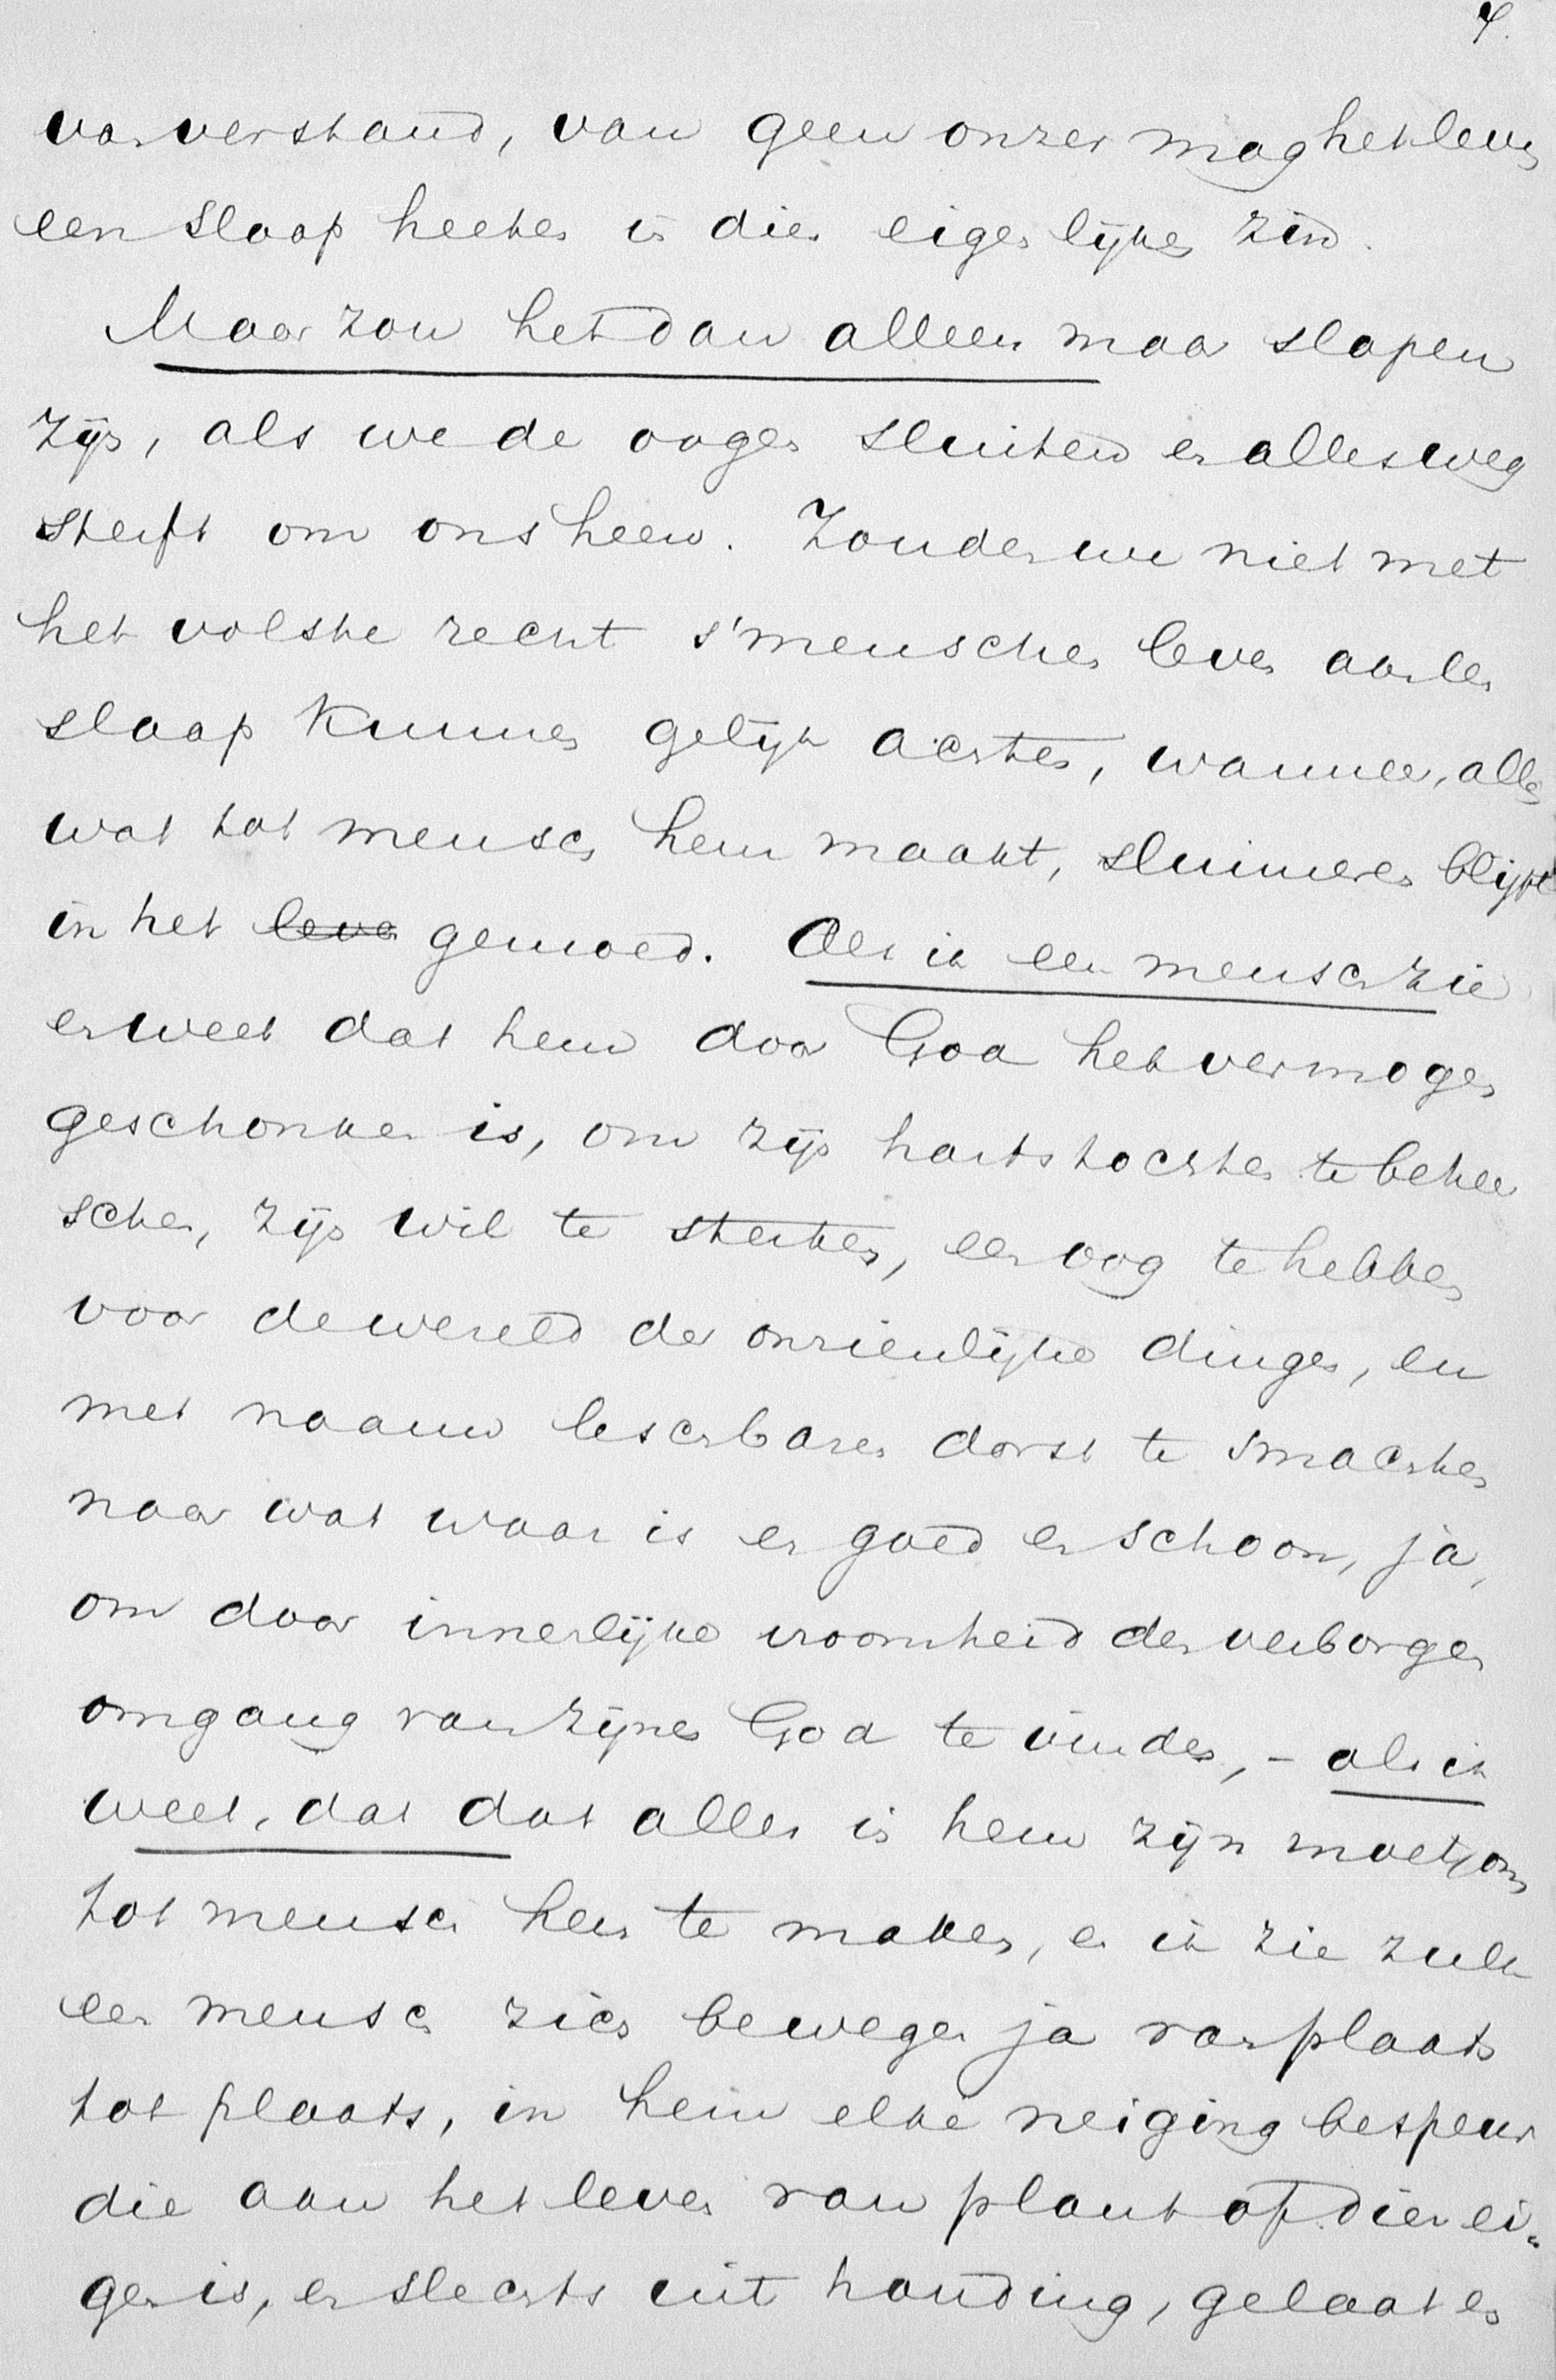 4.
van verstand, van geen onzer mag het leven
een slaap heeten in dien eigenlijken zin.
Maar zou het dan alleen maar slapen
zijn, als we de oogen sluiten en alles weg
sterft om ons heen. Zouden we niet met
het volste recht s'menschen leven aan den
slaap kunnen gelijk achten, wanneer, alles
wat tot mensch hem maakt, sluimeren blijft
in het leven gemoed. Als ik een mensch zie
en weet dat hem door God het vermogen
geschonken is, om zijn hartstochten te beheer
schen, zijn wil te sterken, een oog te hebben
voor de wereld der onzienlijke dingen, en
met naauw leschbaren dorst te smachten
naar wat waar is en goed en schoon, ja,
om door innerlijke vroomheid den verborgen
omgang van zijnen God te vinden, - als ik
weet, dat dat alles in hem zijn moet, om
tot mensch hem te maken, en ik zie zulk
een mensch zich bewegen ja van plaats
tot plaats, in hem elke neiging bespeur
die aan het leven van plant of dier ei-
gen is, en slechts uit houding, gelaat en